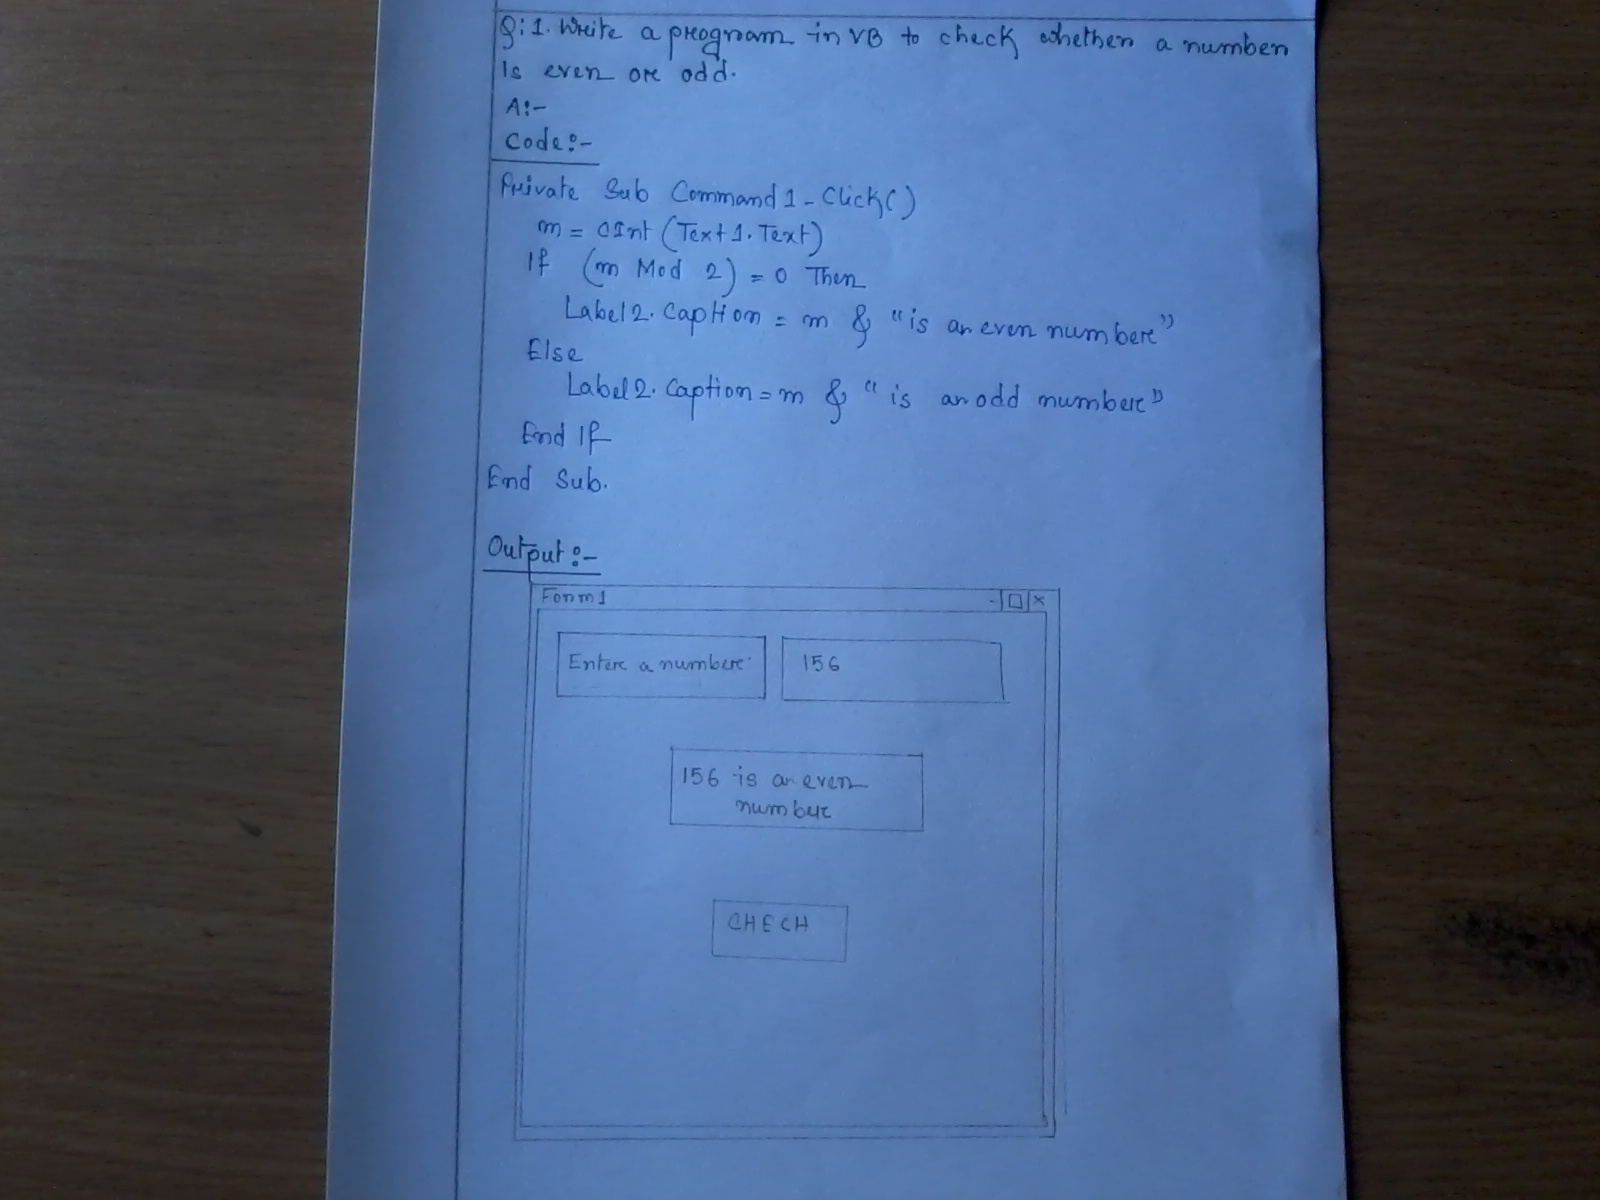 Q:1. Write a program in VB to check whether a number
is even or odd.
A:-
Code:-
Private Sub Command1_Click()
m = CInt (Text1.Text)
If (m Mod 2) = 0 Then
Label2.Caption = m & "is an even number"
Else
Label2.Caption = m & " is an odd number"
End If
End Sub.
Output:-
Form1 - □ ×
Enter a number: 156
156 is an even
number
CHECH